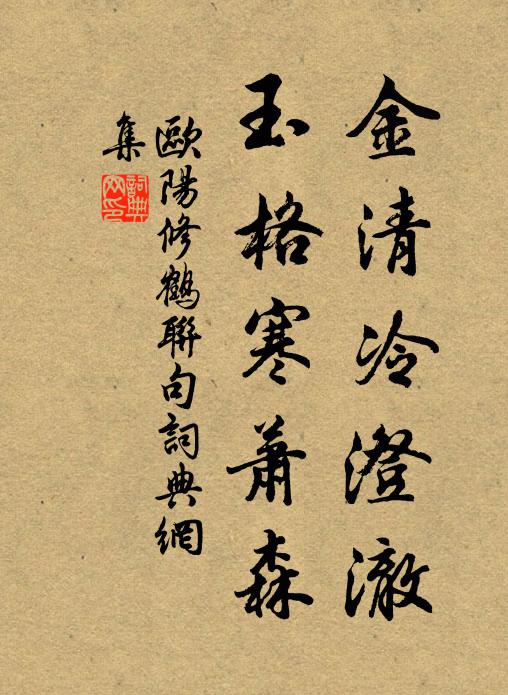 金清冷澄澈
玉格寒蕭森
歐陽修鶴聯句詞典網
集
詞典網印